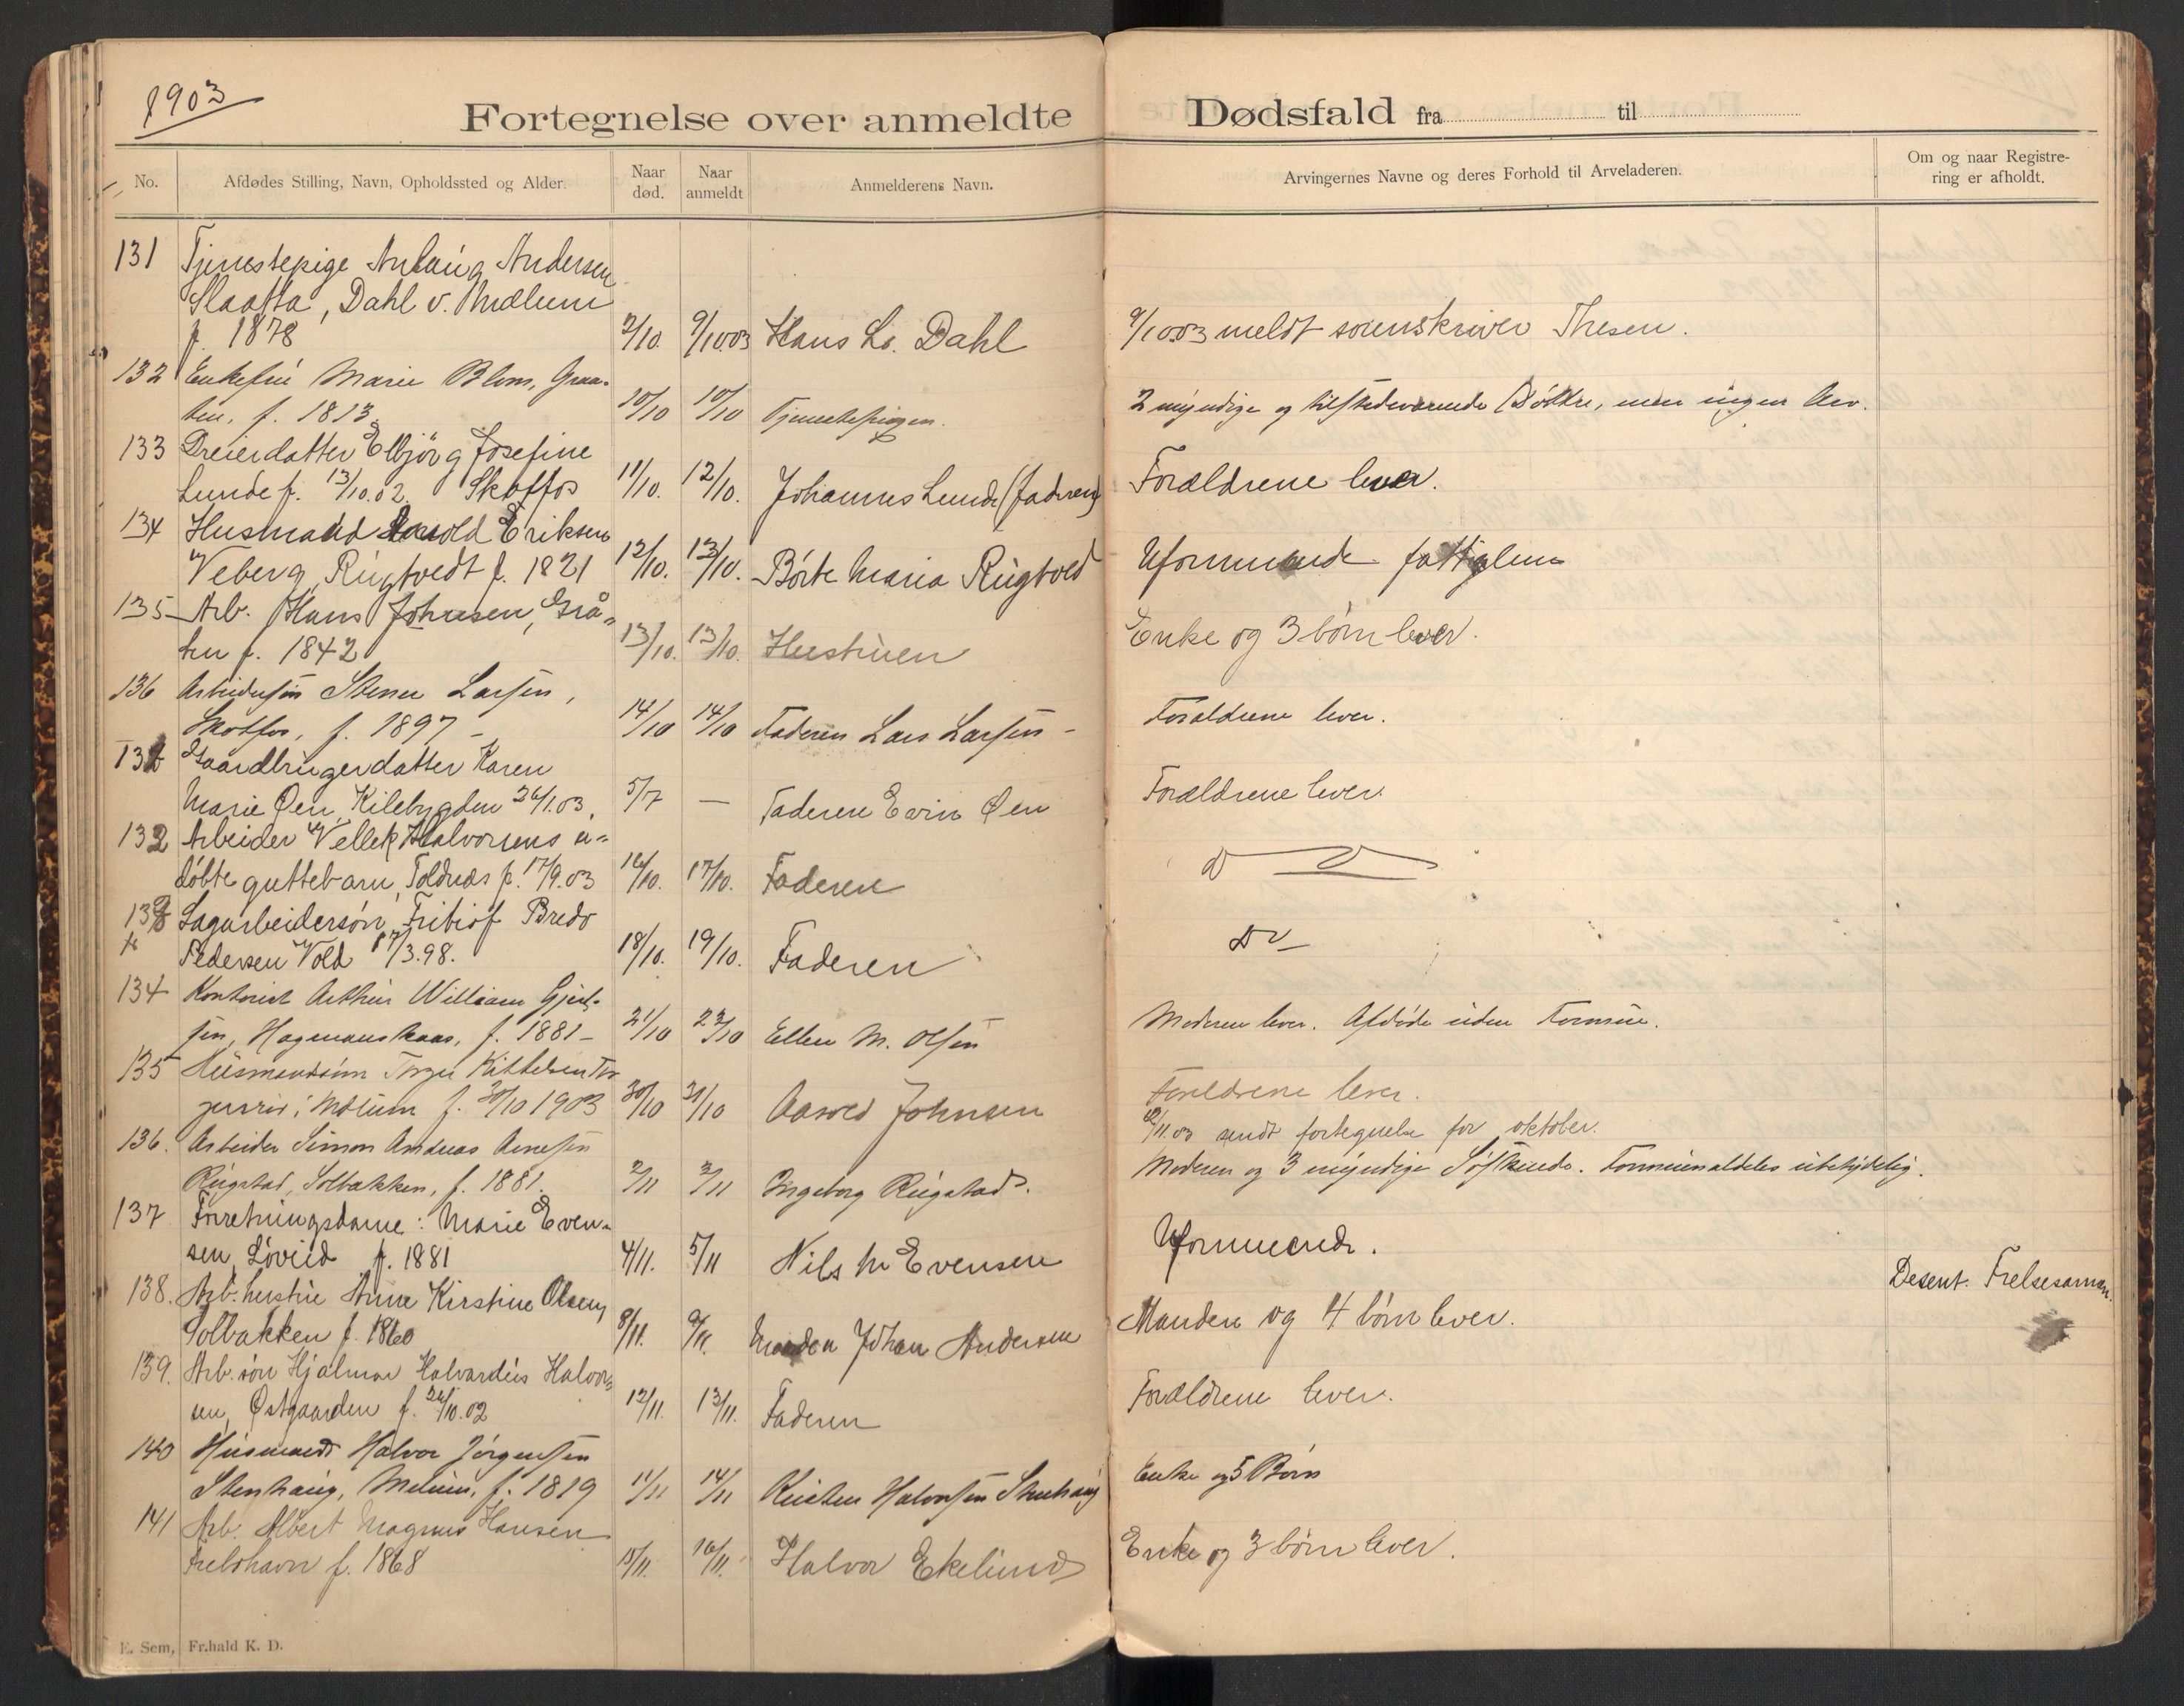 1903
Fortegnelse over anmeldte Dødsfald fra til
No. Afdødes Stilling, Navn, Opholdssted og Alder. Naar død. Naar anmeldt Anmelderens Navn. Arvingernes Navne og deres Forhold til Arveladeren. Om og naar Registrering er afholdt.
131 Tjenestepige Anlaug Andersen
Slaatta, Dahl v. Mælum
f. 1878 2/10. 9/10.03 Hans Ls. Dahl 9/10.03 meldt sorenskriver Thesen.
132 Enkefru Marie Blom, Graa-
ten, f. 1813. 10/10 10/10 Tjenestepigen. 2 myndige og tilstedeværende Døttre, men ingen Arv.
133 Dreierdatter Elbjörg Josefine
Lunde f. 13/10.02. Skotfos 11/10. 12/10. Johannes Lunde (faderen) Forældrene lever.
134 Husmand Eriksen
Veberg, Rugtvedt f. 1821 12/10. 13/10. Börte Maria Rugtved Uformuende fattiglem
135 Arb. Hans Johnsen, Grå-
ten f. 1842 13/10. 13/10. Hustruen Enke og 3 börn lever.
136 Arbeidersøn Stener Larsen,
Skotfos, f. 1897 – 14/10 14/10 Faderen Lars Larsen – Forældrene lever.
132 Gaardbrugerdatter Karen
Marie Øen, Kilebygden 26/1.03. 5/7 — Faderen Evin Øen Forældrene lever.
132 Arbeider Vellek Halvorsens u-
döbte guttebarn, Foldnæs f. 17/9.03 16/10. 17/10. Faderen
133 Sagarbeidersön, Fritiof Bredo
Pedersen Vold 17/3.98. 18/10. 19/10. Faderen
134 Kontorist Arthur William Gjert-
sen, Hagmanskaas, f. 1881 – 21/10 22/10 Ellen M. Olsen Moderen lever. Afdøde uden Formue.
135 Husmandssønn Torger Kittelsen
i Mælum f. 30/10 1903 30/10 31/10 Aasold Johnsen Forældrene lever.
/11.03 sendt fortegnelse for oktober.
136. Arbeider Simon Andreas Arnesen
Rugstad, Solbakken, f. 1881. 2/11 3/11 Ingeborg Rugstad. Moderen og 3 myndige Søskende. Formuen aldeles ubetydelig.
137 Forretningsdame: Marie Even-
sen, Löveid f. 1881 4/11. 5/11 Nils M Evensen Uformuende.
Desent. Frelsesarmen.
138. Arb. hustru Anne Kirstine Olsen,
Solbakken f. 1860 8/11. 9/11. Manden Johan Andersen Manden og 4 börn lever.
139. Arb. sön Hjalmar Halvardius Halvor-
sen, Østgaarden f. 26/10.02 12/11. 13/11. Faderen Forældrene lever.
140 Husmand Halvor Jørgensen
Stenhaug, Melum, f. 1819 11/11 14/11 Kirsten Halvorsen Stenhaug Enke og 5 Børn
141 Arb. Albert Magnus Hansen
f. 1868 15/11. 16/11. Halvor Ekelund Enke og 3 börn lever.
E. Sem, Fr.hald K. D.